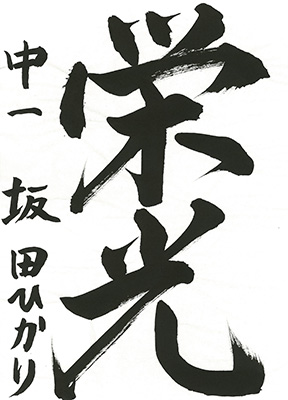 栄光
中一 坂田ひかり